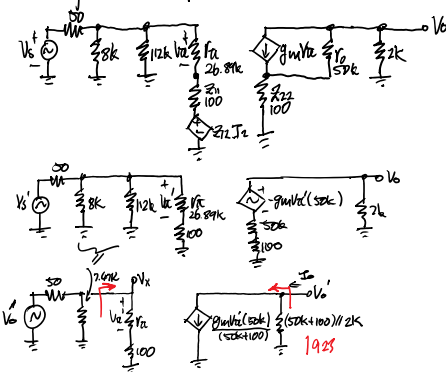 50
Vs + -
8k
112k
+ Va -
ra
26.89k
Z11
100
Z12.I2
gmVa
ro
50k
2k
Vo
Z22
100
50
Vs'
8k
112k
+ Va' -
ra
26.89k
100
-gmVa'(50k)
50k
100
2k
Vo
50
7.47k
Vx
Va'
ra
100
gmVa'(50k)
(50k+100)
Io
Vo'
(50k+100)//2k
1923